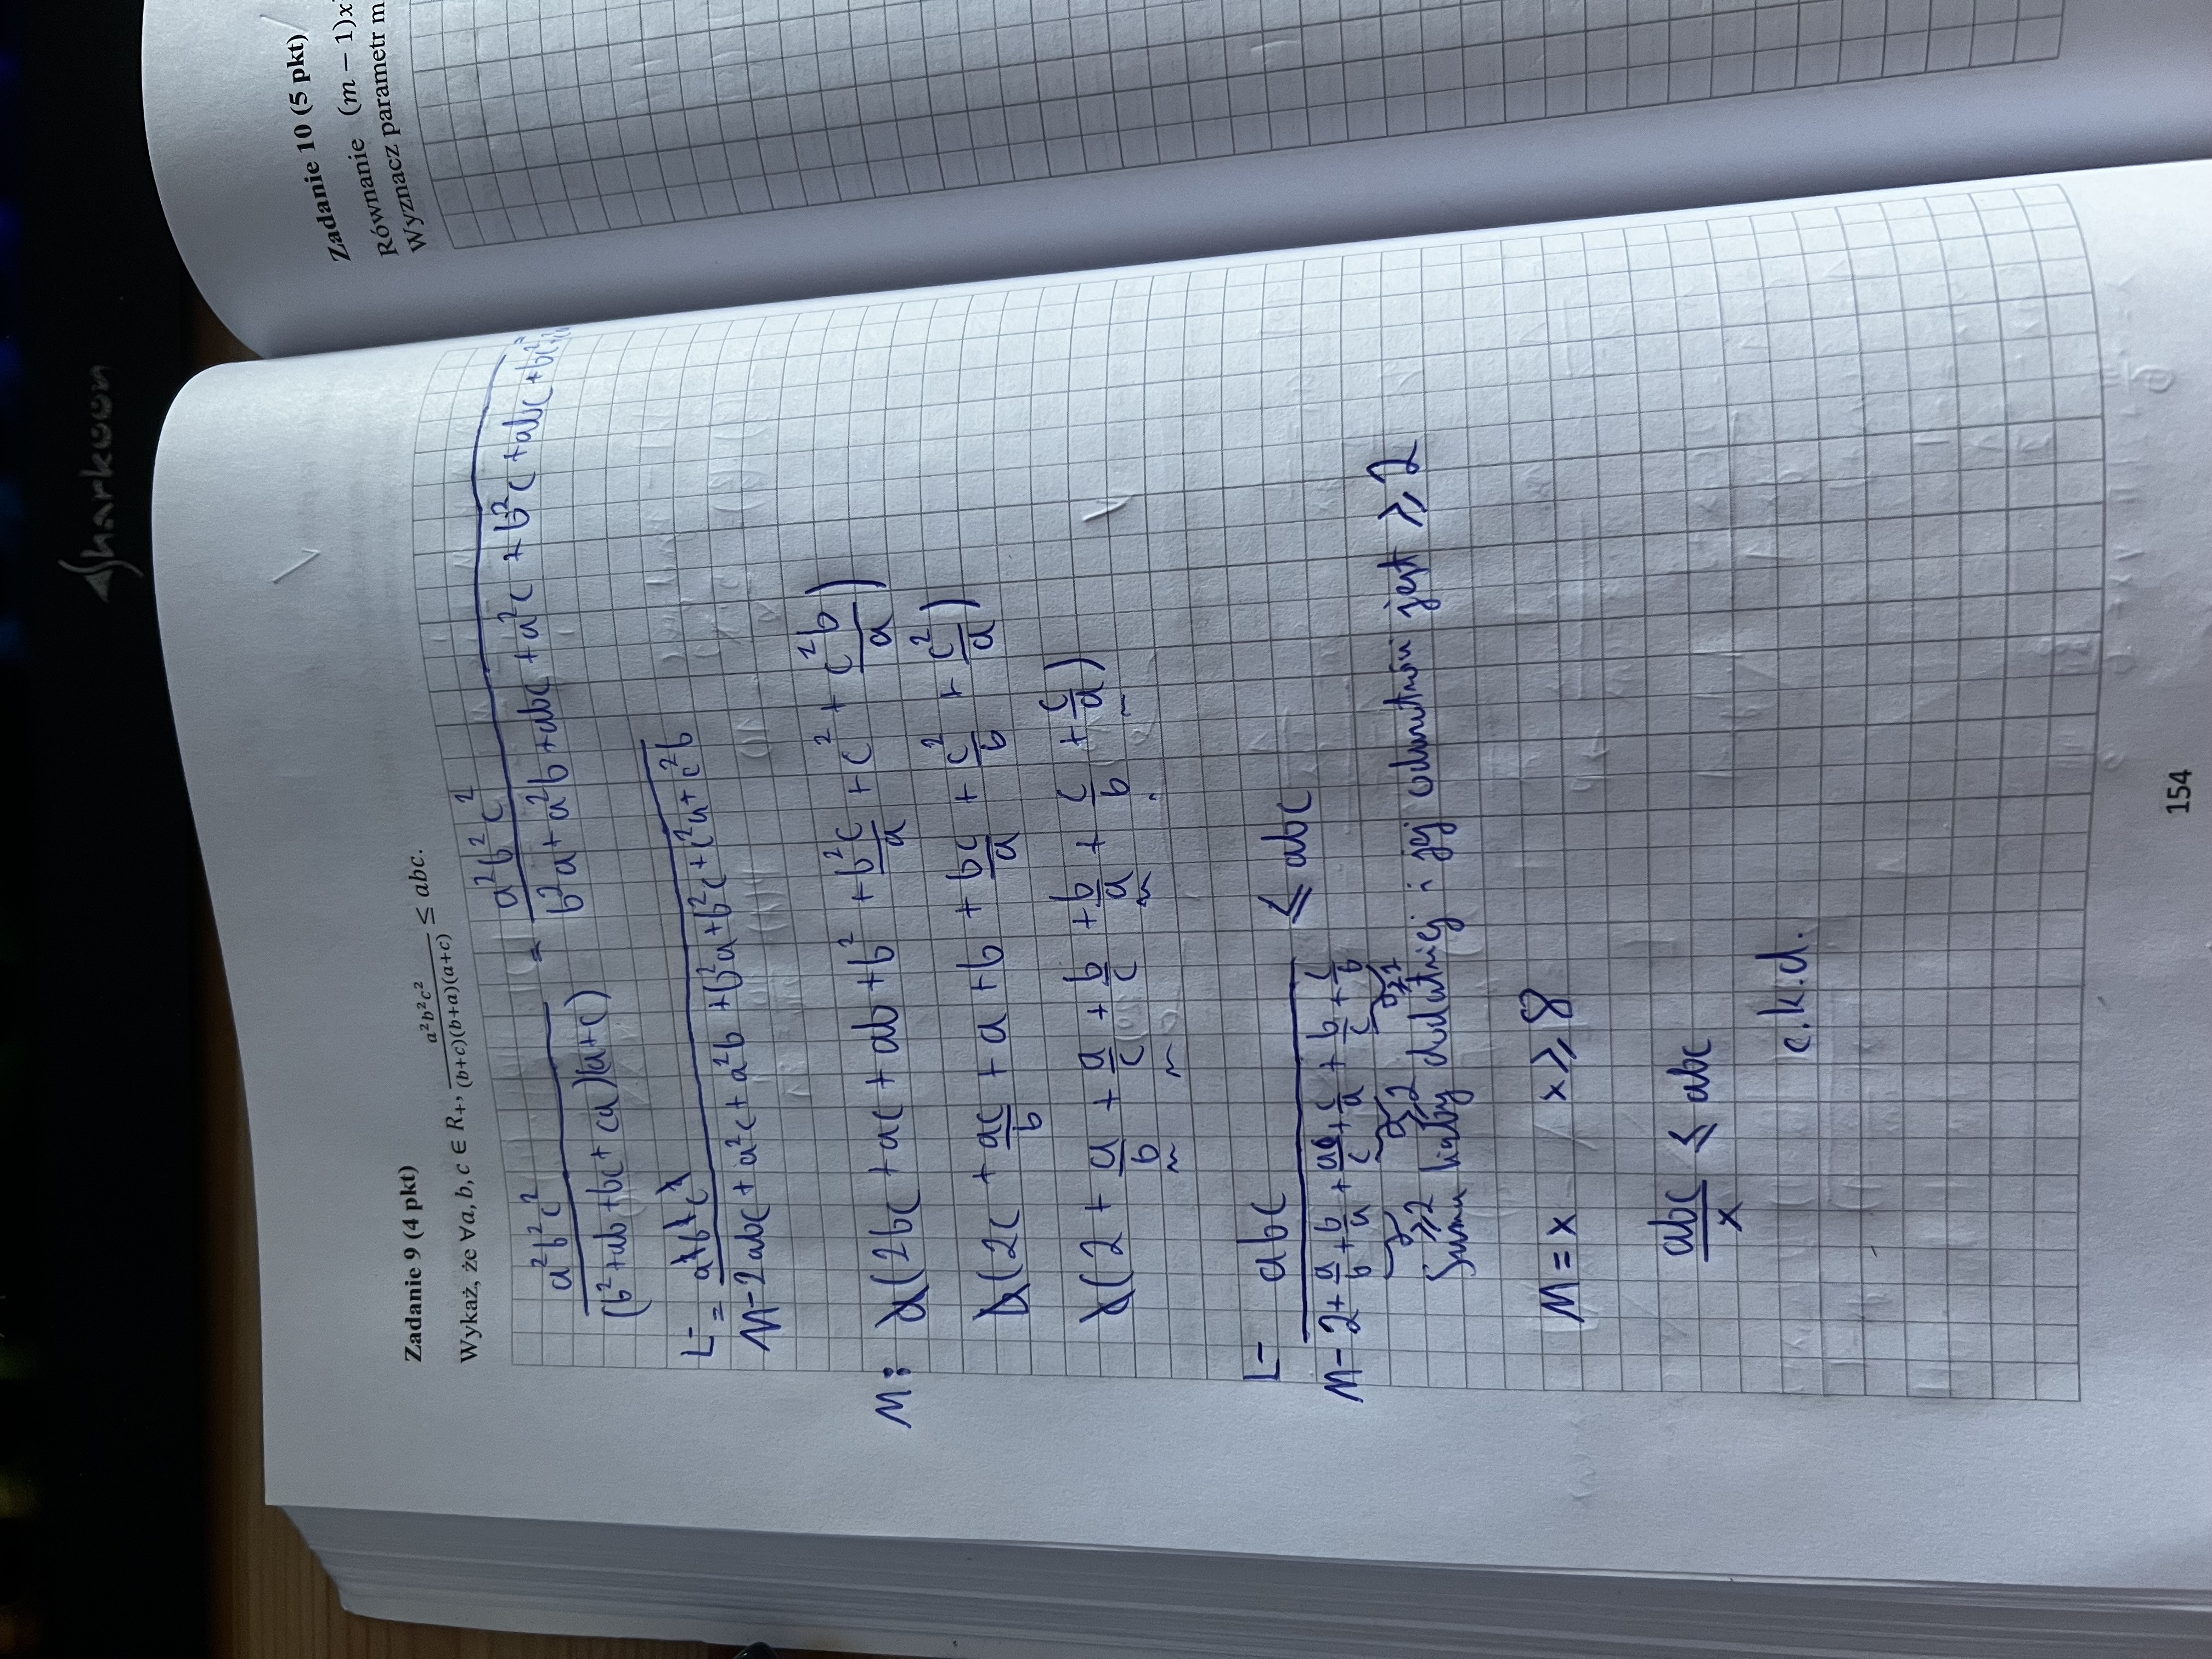 Sharkoon
Zadanie 9 (4 pkt)
Wykaż, że ∀a, b, c ∈ R₊, a²b²c²/((b+c)(b+a)(a+c)) ≤ abc.
a²b²c²/((b²+ab+bc+ca)(a+c)) = a²b²c²/(b²a+a²b+abc+a²c+b²c+abc+bc²
L- = a²b²c²
M- 2abc+a²c+a²b+b²a+b²c+c²a+c²b
M: a(2bc+ac+ab+b²+b²c/a+c²+c²b/a)
b(2c+ac/b+a+b+bc/a+c²/b+c²/a)
c(2+a/b+a/c+b/c+b/a+c/b+c/a)
L- abc ≤ abc
M- 2+a/b+b/a+a/c+c/a+b/c+c/b
≥2 ≥2 ≥2
Suma liczby dodatniej i jej odwrotności jest ≥2
M=x x≥8
abc/x ≤ abc
c.k.d.
154
Zadanie 10 (5 pkt)
Równanie (m − 1)x
Wyznacz parametr m